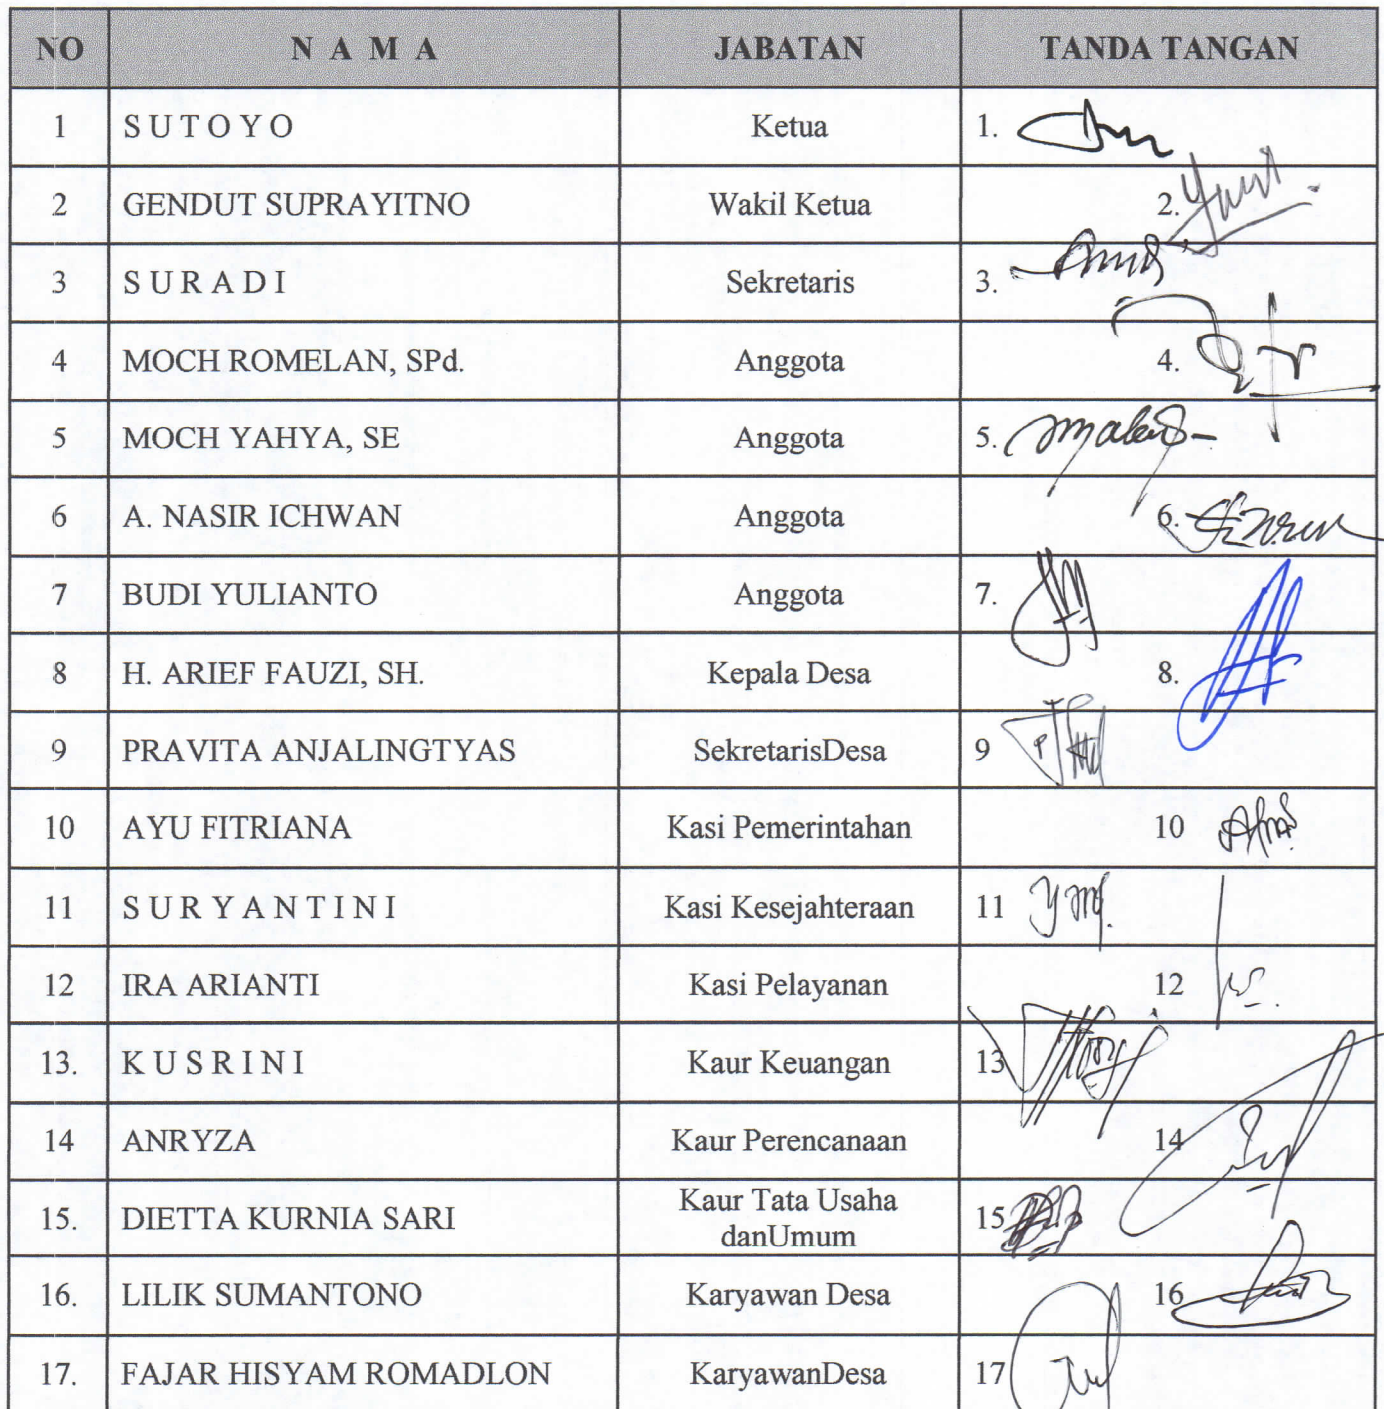 NO N A M A JABATAN TANDA TANGAN
1 S U T O Y O Ketua 1.
2 GENDUT SUPRAYITNO Wakil Ketua 2.
3 S U R A D I Sekretaris 3.
4 MOCH ROMELAN, SPd. Anggota 4.
5 MOCH YAHYA, SE Anggota 5.
6 A. NASIR ICHWAN Anggota 6.
7 BUDI YULIANTO Anggota 7.
8 H. ARIEF FAUZI, SH. Kepala Desa 8.
9 PRAVITA ANJALINGTYAS SekretarisDesa 9
10 AYU FITRIANA Kasi Pemerintahan 10
11 S U R Y A N T I N I Kasi Kesejahteraan 11
12 IRA ARIANTI Kasi Pelayanan 12
13. K U S R I N I Kaur Keuangan 13
14 ANRYZA Kaur Perencanaan 14
15. DIETTA KURNIA SARI Kaur Tata Usaha
danUmum 15
16. LILIK SUMANTONO Karyawan Desa 16
17. FAJAR HISYAM ROMADLON KaryawanDesa 17